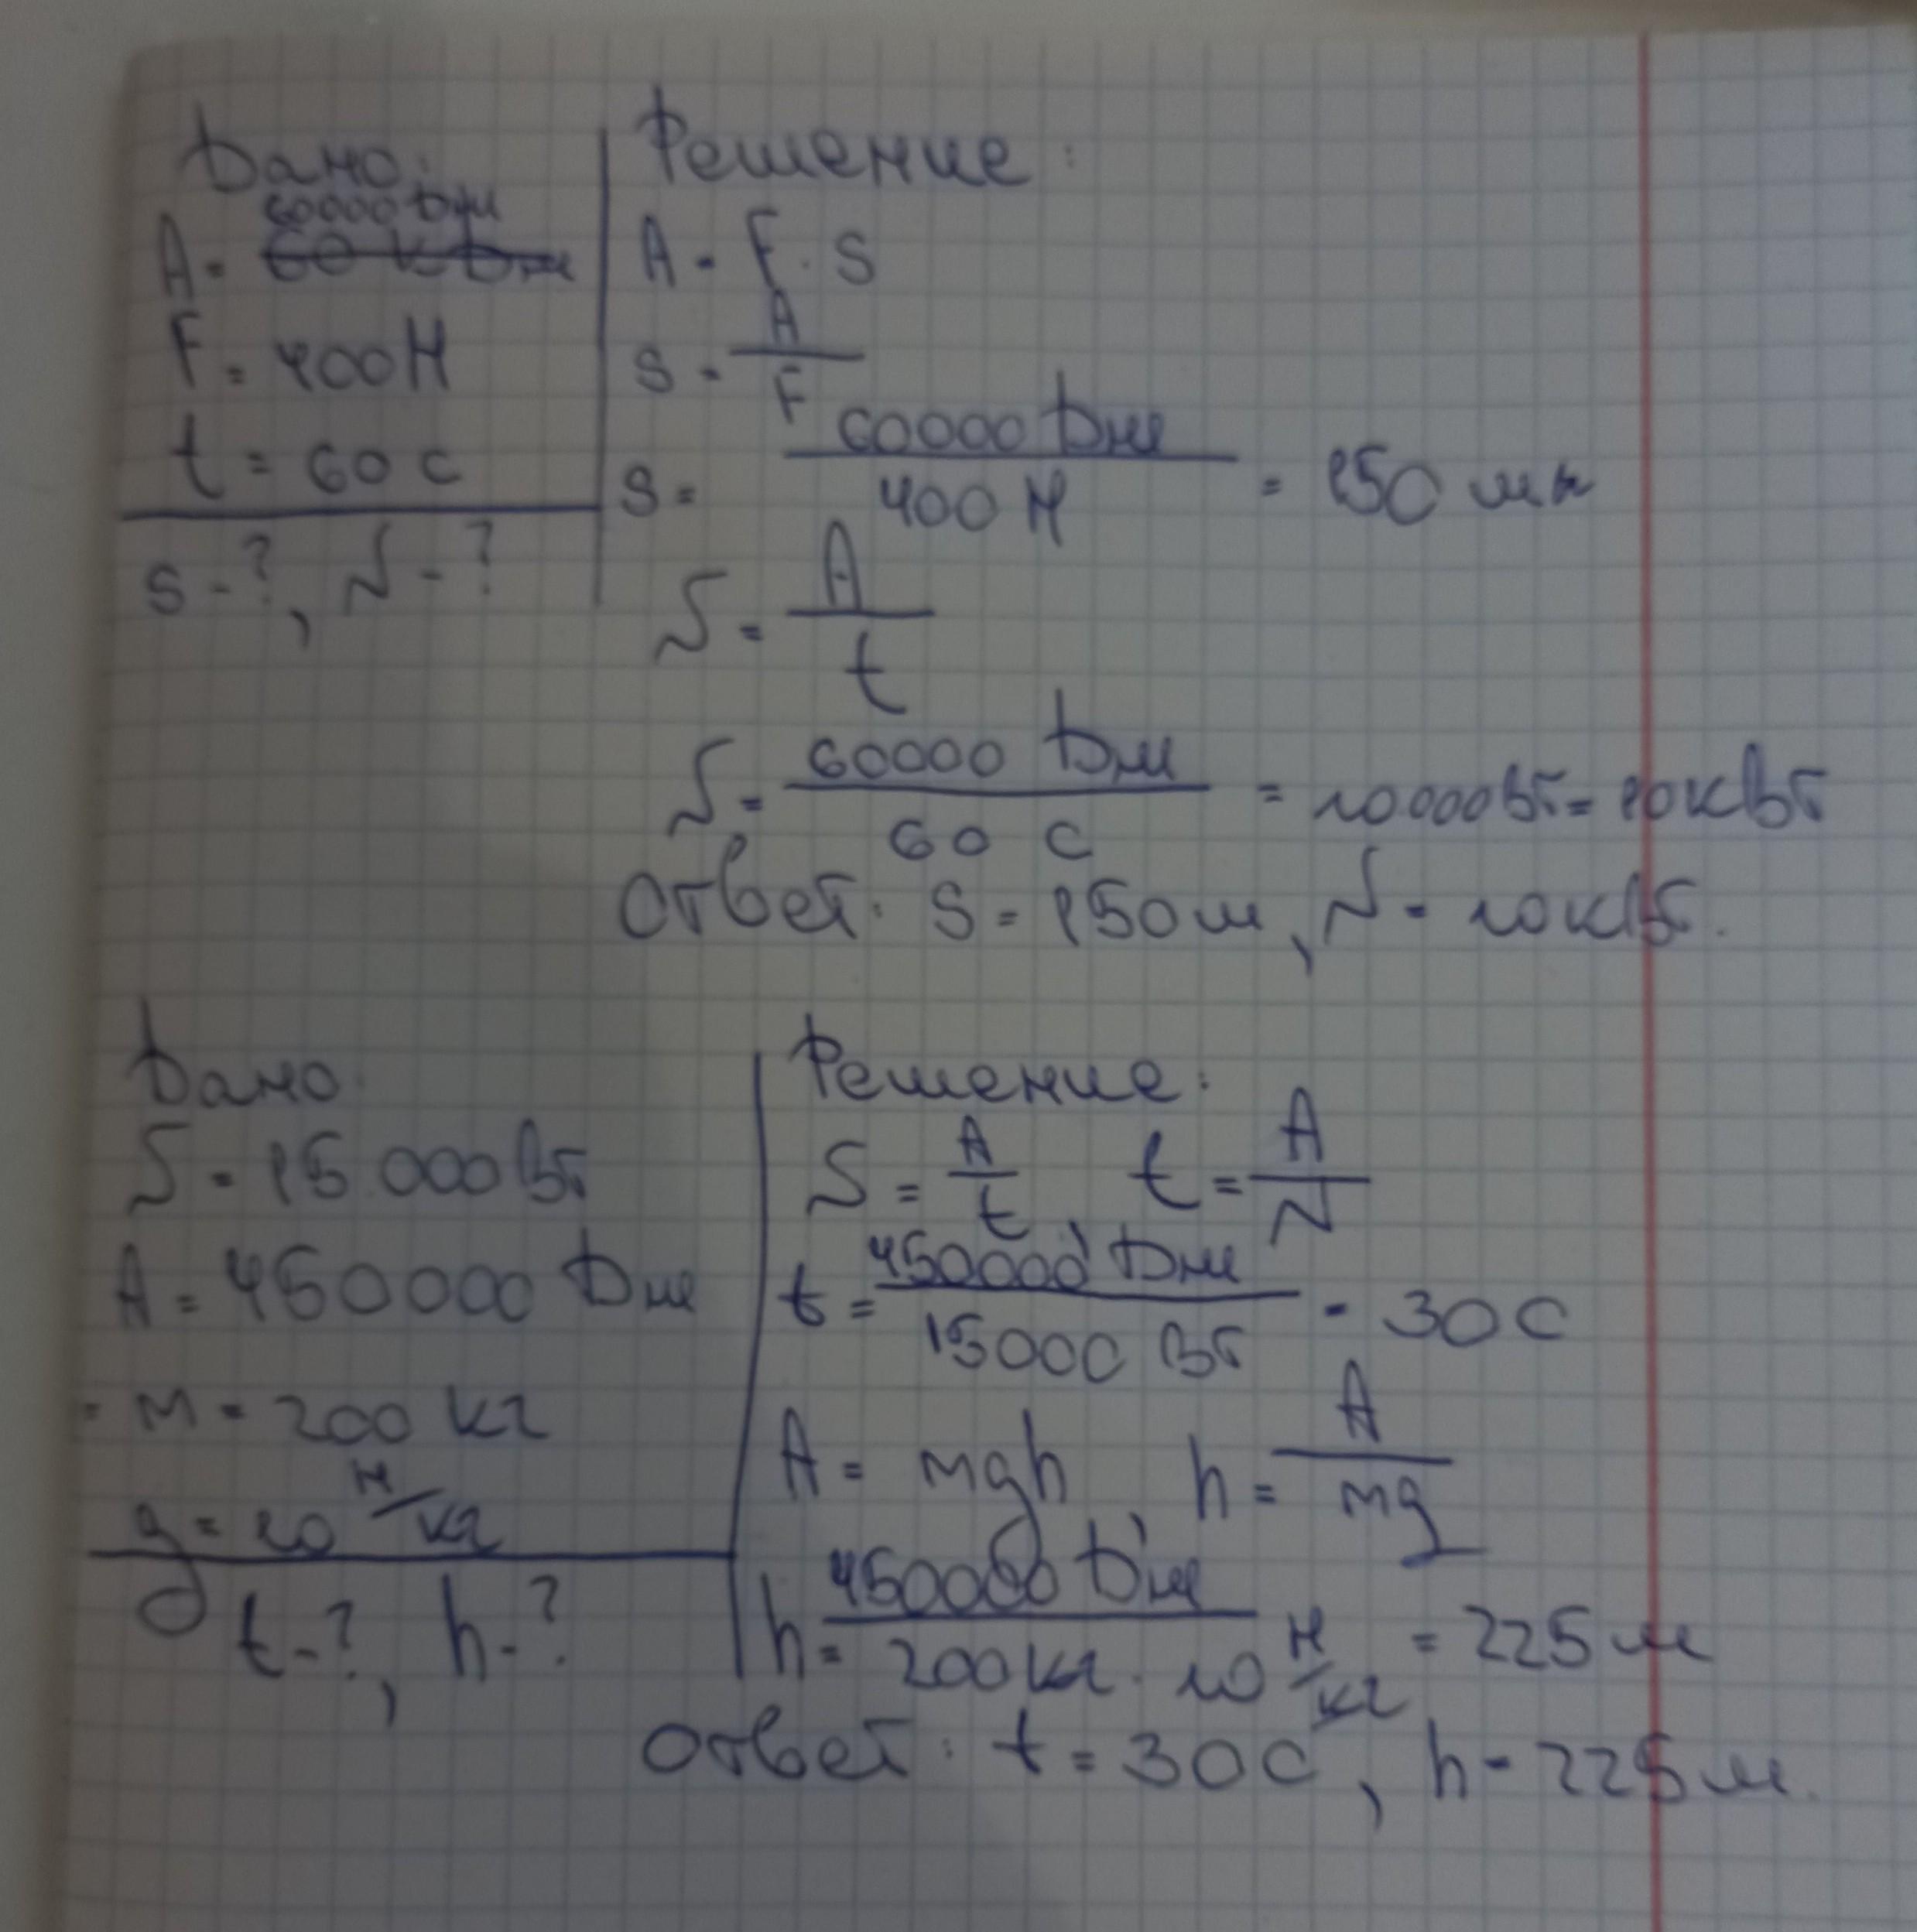 Дано:
60000 Дж
A = 60 кДж
F = 400 Н
t = 60 с
s - ?, N - ?
Решение:
A = F · S
s = A / F
s = 60000 Дж / 400 Н = 150 м
N = A / t
N = 60000 Дж / 60 с = 10000 Вт = 10 кВт
Ответ: s = 150 м, N = 10 кВт.
Дано:
N = 15 000 Вт
A = 450000 Дж
m = 200 кг
g = 10 Н/кг
t - ?, h - ?
Решение:
N = A / t, t = A / N
t = 450000 Дж / 15000 Вт = 30 с
A = mgh, h = A / mg
h = 450000 Дж / 200 кг · 10 Н/кг = 225 м
Ответ: t = 30 с, h = 225 м.